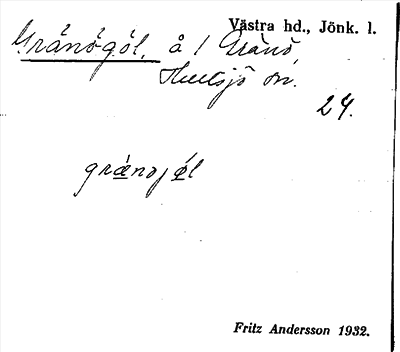 Västra hd., Jönk. l.
Gränögöl, å / Gränö,
Hultsjö sn.
24.
grǽnɔjǿl
Fritz Andersson 1932.